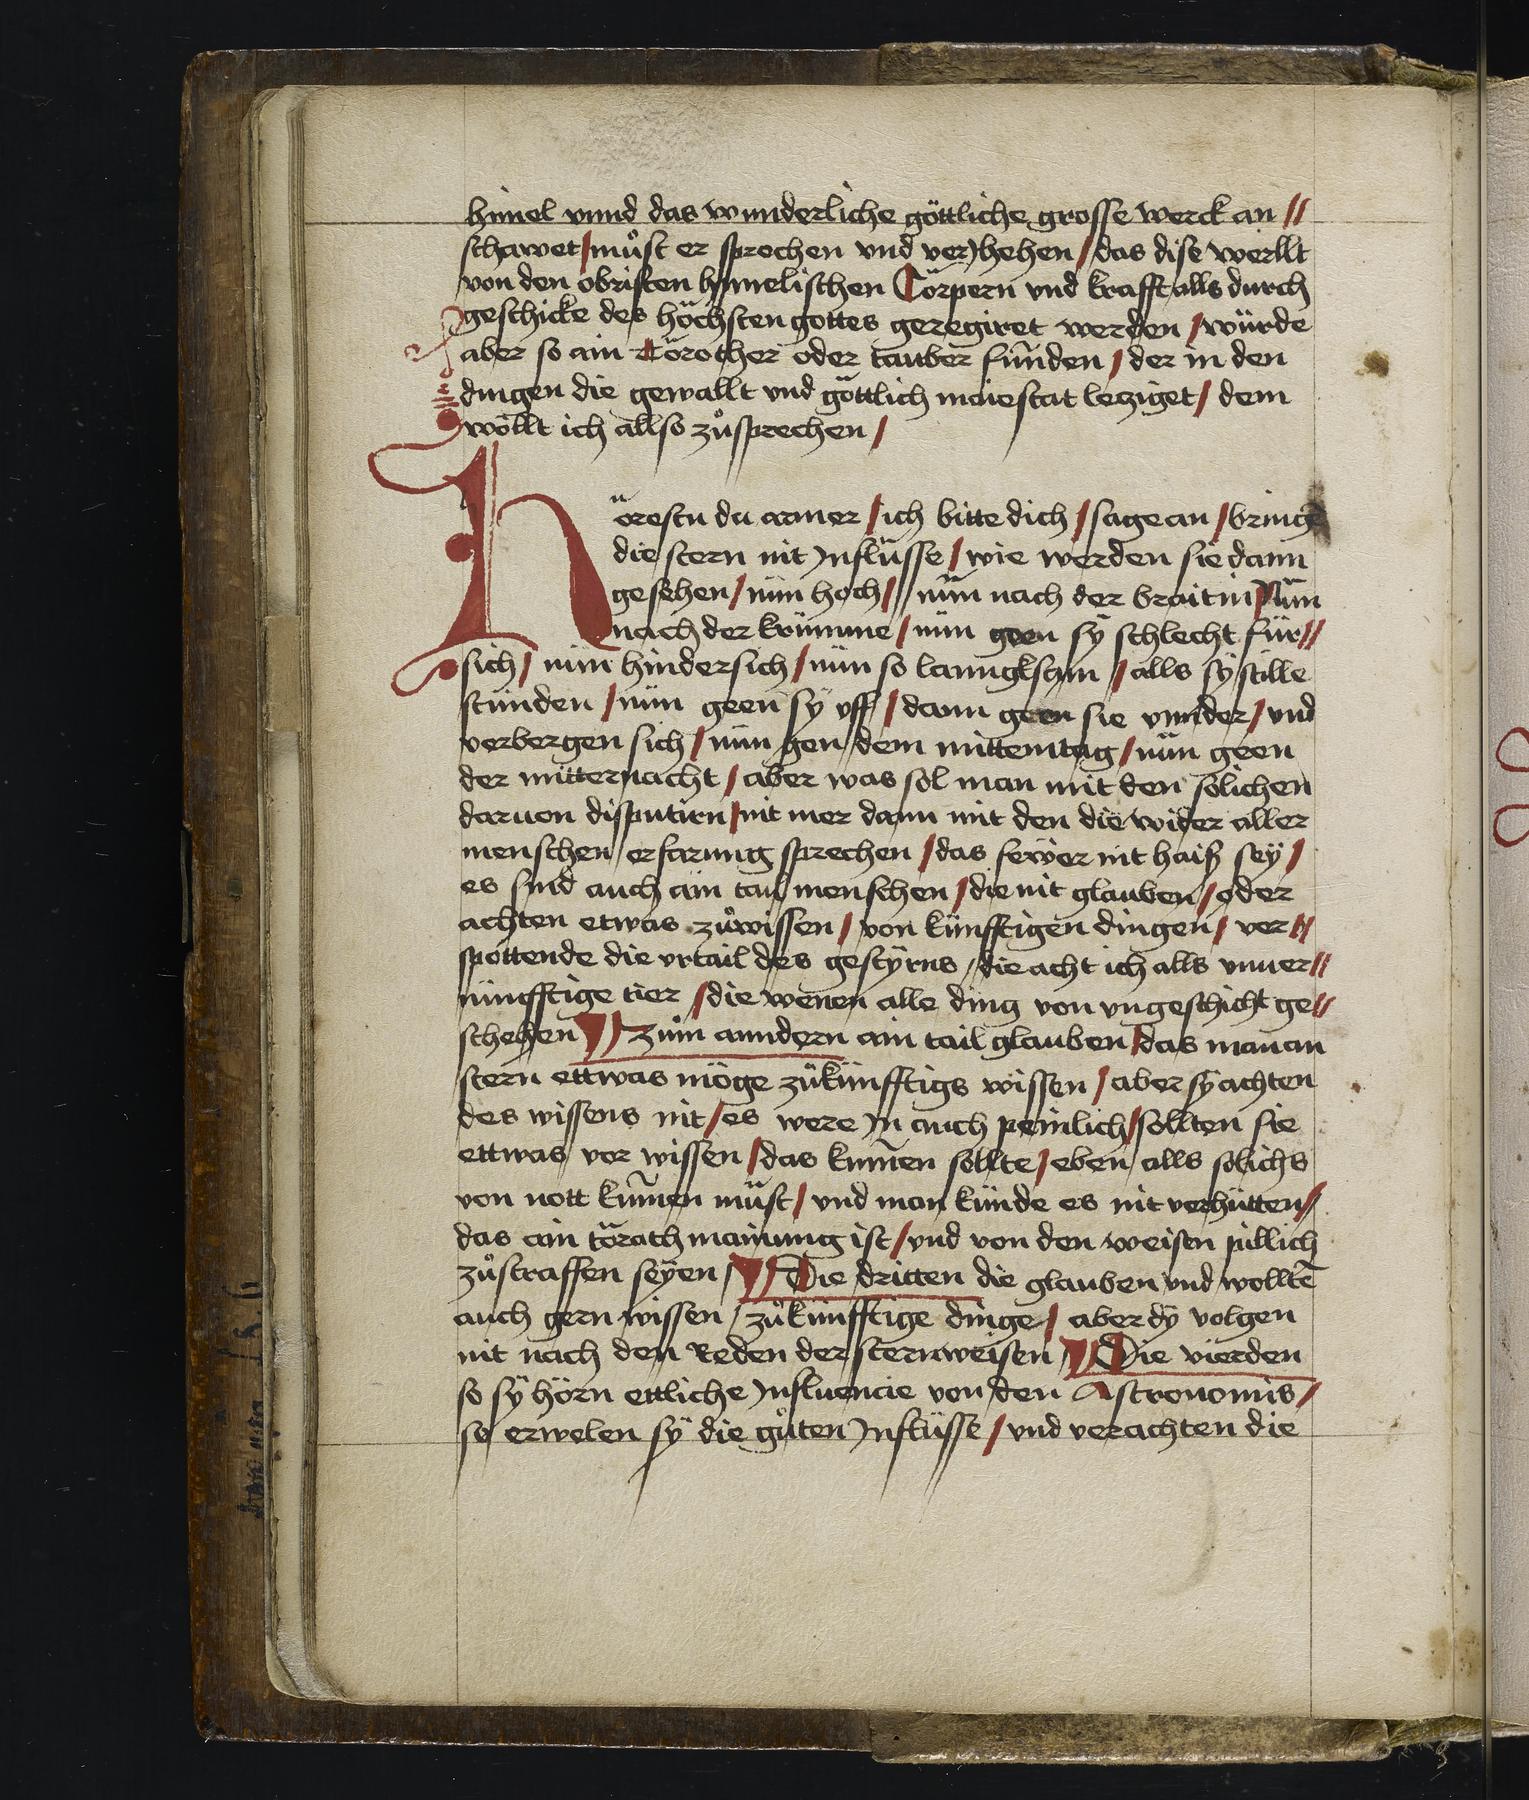 himel vnnd das wunderliche göttliche grosse werck an //
schawet / můst er sprechen vnd verJhehen / das dise werllt
von den obristen hymelischen Cörpern vnd krafft alls durch
geschicke des höchsten gottes geregiret werden / würde
aber so ain törother oder tauber funden / der in den
dingen die gewallt vnd göttlich maiestat leziget / dem
wöllt ich allso zůsprechen /
Hörestu du armer / ich bitte dich / sage an / bringē
die stern nit Jnflüsse / wie werden sie dann
gesehen / nün hoch / nün nach der braitin / Nün
nach der krümme / nün geen sÿ schlecht für //
sich / nün hindersich / nün so lanngksam / alls sÿ stille
stünden / nün geen sÿ vff / dann geen sie vnnder / vnd
verbergen sich / nün gen dem mittemtag / nün geen
der mitternacht / aber was sol man mit den sölichen
daruon disputirn / nit mer dann mit den die wider aller
menschen erfarung sprechen / das fewer nit haiß seÿ /
es sind auch ain tail menschen / die nit glauben / oder
achten etwas zůwissen / von künfftigen dingen / ver //
spottende die vrtail des gestÿrns / die acht ich alls vnuer //
nünfftige tier / die wenen alle ding von vngeschicht ge //
schehen ¶ Zům anndern ain tail glauben / das man an
stern ettwas möge zůkünfftigs wissen / aber sÿ achten
des wissens nit / es were Jn auch peinlich / sollten sie
ettwas vor wissen / das kumen sollte / eben alls solichs
von nott kumen müst / vnd man künde es nit verhütten /
das ain törath mainung ist / vnd von den weisen pillich
zůstraffen seÿen / ¶ Die dritten die glauben vnd wolltē
auch gern wissen / zůkünfftige dinge / aber dÿ volgen
nit nach den Reden der sternweisen ¶ Die vierden
so sÿ hörn ettliche Jnfluencie von den Astronomis /
so erwelen sÿ die gůten Jnflüsse / vnd verachten die